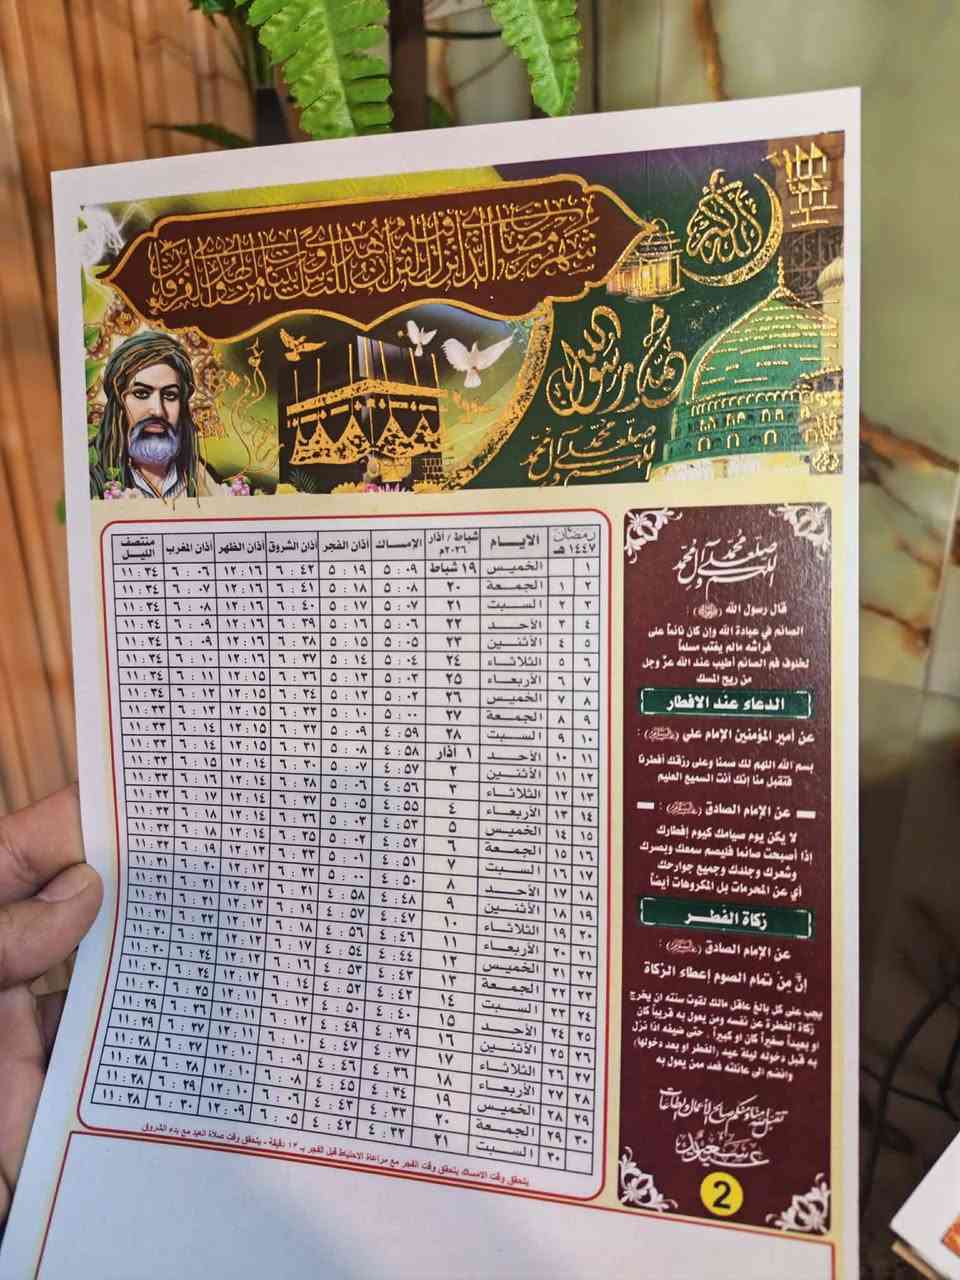 شهر رمضان الذي أنزل فيه القرآن هدى للناس وبينات من الهدى والفرقان
الله
محمد رسول الله
اللهم صل على محمد وآل محمد
رمضان ١٤٤٧ هـ الايام شباط / أذار ٢٠٢٦م الإمساك أذان الفجر أذان الشروق أذان الظهر أذان المغرب منتصف الليل
١ الخميس ١٩ شباط ٥:٠٩ ٥:١٩ ٦:٤٢ ١٢:١٦ ٦:٠٦ ١١:٣٤
٢ ١ الجمعة ٢٠ ٥:٠٨ ٥:١٨ ٦:٤١ ١٢:١٦ ٦:٠٧ ١١:٣٤
٣ ٢ السبت ٢١ ٥:٠٧ ٥:١٧ ٦:٤٠ ١٢:١٦ ٦:٠٨ ١١:٣٤
٤ ٣ الأحد ٢٢ ٥:٠٦ ٥:١٦ ٦:٣٩ ١٢:١٦ ٦:٠٩ ١١:٣٤
٥ ٤ الأثنين ٢٣ ٥:٠٥ ٥:١٥ ٦:٣٨ ١٢:١٦ ٦:٠٩ ١١:٣٤
٦ ٥ الثلاثاء ٢٤ ٥:٠٤ ٥:١٤ ٦:٣٧ ١٢:١٦ ٦:١٠ ١١:٣٤
٧ ٦ الأربعاء ٢٥ ٥:٠٣ ٥:١٣ ٦:٣٦ ١٢:١٥ ٦:١١ ١١:٣٤
٨ ٧ الخميس ٢٦ ٥:٠٢ ٥:١٢ ٦:٣٤ ١٢:١٥ ٦:١٢ ١١:٣٤
٩ ٨ الجمعة ٢٧ ٥:٠٠ ٥:١٠ ٦:٣٣ ١٢:١٥ ٦:١٣ ١١:٣٣
١٠ ٩ السبت ٢٨ ٤:٥٩ ٥:٠٩ ٦:٣٢ ١٢:١٥ ٦:١٤ ١١:٣٣
١١ ١٠ الأحد ١ أذار ٤:٥٨ ٥:٠٨ ٦:٣١ ١٢:١٥ ٦:١٤ ١١:٣٣
١٢ ١١ الأثنين ٢ ٤:٥٧ ٥:٠٧ ٦:٣٠ ١٢:١٤ ٦:١٥ ١١:٣٣
١٣ ١٢ الثلاثاء ٣ ٤:٥٦ ٥:٠٦ ٦:٢٨ ١٢:١٤ ٦:١٦ ١١:٣٣
١٤ ١٣ الأربعاء ٤ ٤:٥٥ ٥:٠٥ ٦:٢٧ ١٢:١٤ ٦:١٧ ١١:٣٣
١٥ ١٤ الخميس ٥ ٤:٥٣ ٥:٠٣ ٦:٢٦ ١٢:١٤ ٦:١٨ ١١:٣٣
١٦ ١٥ الجمعة ٦ ٤:٥٢ ٥:٠٢ ٦:٢٥ ١٢:١٤ ٦:١٨ ١١:٣٢
١٧ ١٦ السبت ٧ ٤:٥١ ٥:٠١ ٦:٢٣ ١٢:١٣ ٦:١٩ ١١:٣٢
١٨ ١٧ الأحد ٨ ٤:٥٠ ٥:٠٠ ٦:٢٢ ١٢:١٣ ٦:٢٠ ١١:٣١
١٩ ١٨ الأثنين ٩ ٤:٤٨ ٤:٥٨ ٦:٢١ ١٢:١٣ ٦:٢١ ١١:٣١
٢٠ ١٩ الثلاثاء ١٠ ٤:٤٧ ٤:٥٧ ٦:١٩ ١٢:١٣ ٦:٢١ ١١:٣١
٢١ ٢٠ الأربعاء ١١ ٤:٤٦ ٤:٥٦ ٦:١٨ ١٢:١٢ ٦:٢٢ ١١:٣١
٢٢ ٢١ الخميس ١٢ ٤:٤٤ ٤:٥٤ ٦:١٧ ١٢:١٢ ٦:٢٣ ١١:٣٠
٢٣ ٢٢ الجمعة ١٣ ٤:٤٣ ٤:٥٣ ٦:١٦ ١٢:١٢ ٦:٢٤ ١١:٣٠
٢٤ ٢٣ السبت ١٤ ٤:٤٢ ٤:٥٢ ٦:١٤ ١٢:١٢ ٦:٢٤ ١١:٣٠
٢٥ ٢٤ الأحد ١٥ ٤:٤٠ ٤:٥٠ ٦:١٣ ١٢:١١ ٦:٢٥ ١١:٣٠
٢٦ ٢٥ الأثنين ١٦ ٤:٣٩ ٤:٤٩ ٦:١٢ ١٢:١١ ٦:٢٦ ١١:٢٩
٢٧ ٢٦ الثلاثاء ١٧ ٤:٣٧ ٤:٤٧ ٦:١٠ ١٢:١١ ٦:٢٧ ١١:٢٩
٢٨ ٢٧ الأربعاء ١٨ ٤:٣٦ ٤:٤٦ ٦:٠٩ ١٢:١٠ ٦:٢٧ ١١:٢٨
٢٩ ٢٨ الخميس ١٩ ٤:٣٤ ٤:٤٥ ٦:٠٨ ١٢:١٠ ٦:٢٨ ١١:٢٨
٣٠ ٢٩ الجمعة ٢٠ ٤:٣٣ ٤:٤٣ ٦:٠٦ ١٢:١٠ ٦:٢٩ ١١:٢٨
٣٠ السبت ٢١ ٤:٣٢ ٤:٤٢ ٦:٠٥ ١٢:٠٩ ٦:٣٠ ١١:٢٨
يتحقق وقت الامساك بتحقق وقت الفجر مع مراعاة الاحتياط قبل الفجر بـ ١٢ دقيقة - يتحقق وقت صلاة العيد مع بدء الشروق
اللهم صل على محمد وآل محمد
قال رسول الله (ﷺ) :
الصائم في عبادة الله وإن كان نائماً على
فراشه مالم يغتب مسلماً
لخلوف فم الصائم أطيب عند الله عزّ وجل
من ريح المسك
الدعاء عند الافطار
عن أمير المؤمنين الإمام علي (عليه السلام) :
بسم الله اللهم لك صمنا وعلى رزقك أفطرنا
فتقبل منا إنك أنت السميع العليم
عن الإمام الصادق (عليه السلام)
لا يكن يوم صيامك كيوم إفطارك
إذا أصبحت صائما فليصم سمعك وبصرك
وشعرك وجلدك وجميع جوارحك
أي عن المحرمات بل المكروهات أيضاً
زكاة الفطر
عن الإمام الصادق (عليه السلام) :
إنَّ مِنْ تمام الصوم إعطاء الزكاة
يجب على كل بالغ عاقل مالك لقوت سنته ان يخرج
زكاة الفطرة عن نفسه ومن يعول به قريباً كان
او بعيداً صغيراً كان او كبيراً . حتى ضيفه اذا نزل
به قبل دخوله ليلة عيد (الفطر او بعد دخولها)
وانضم الى عائلته فعد ممن يعول به
تقبل الله منا ومنكم صالح الأعمال والطاعات
عيد سعيد
2